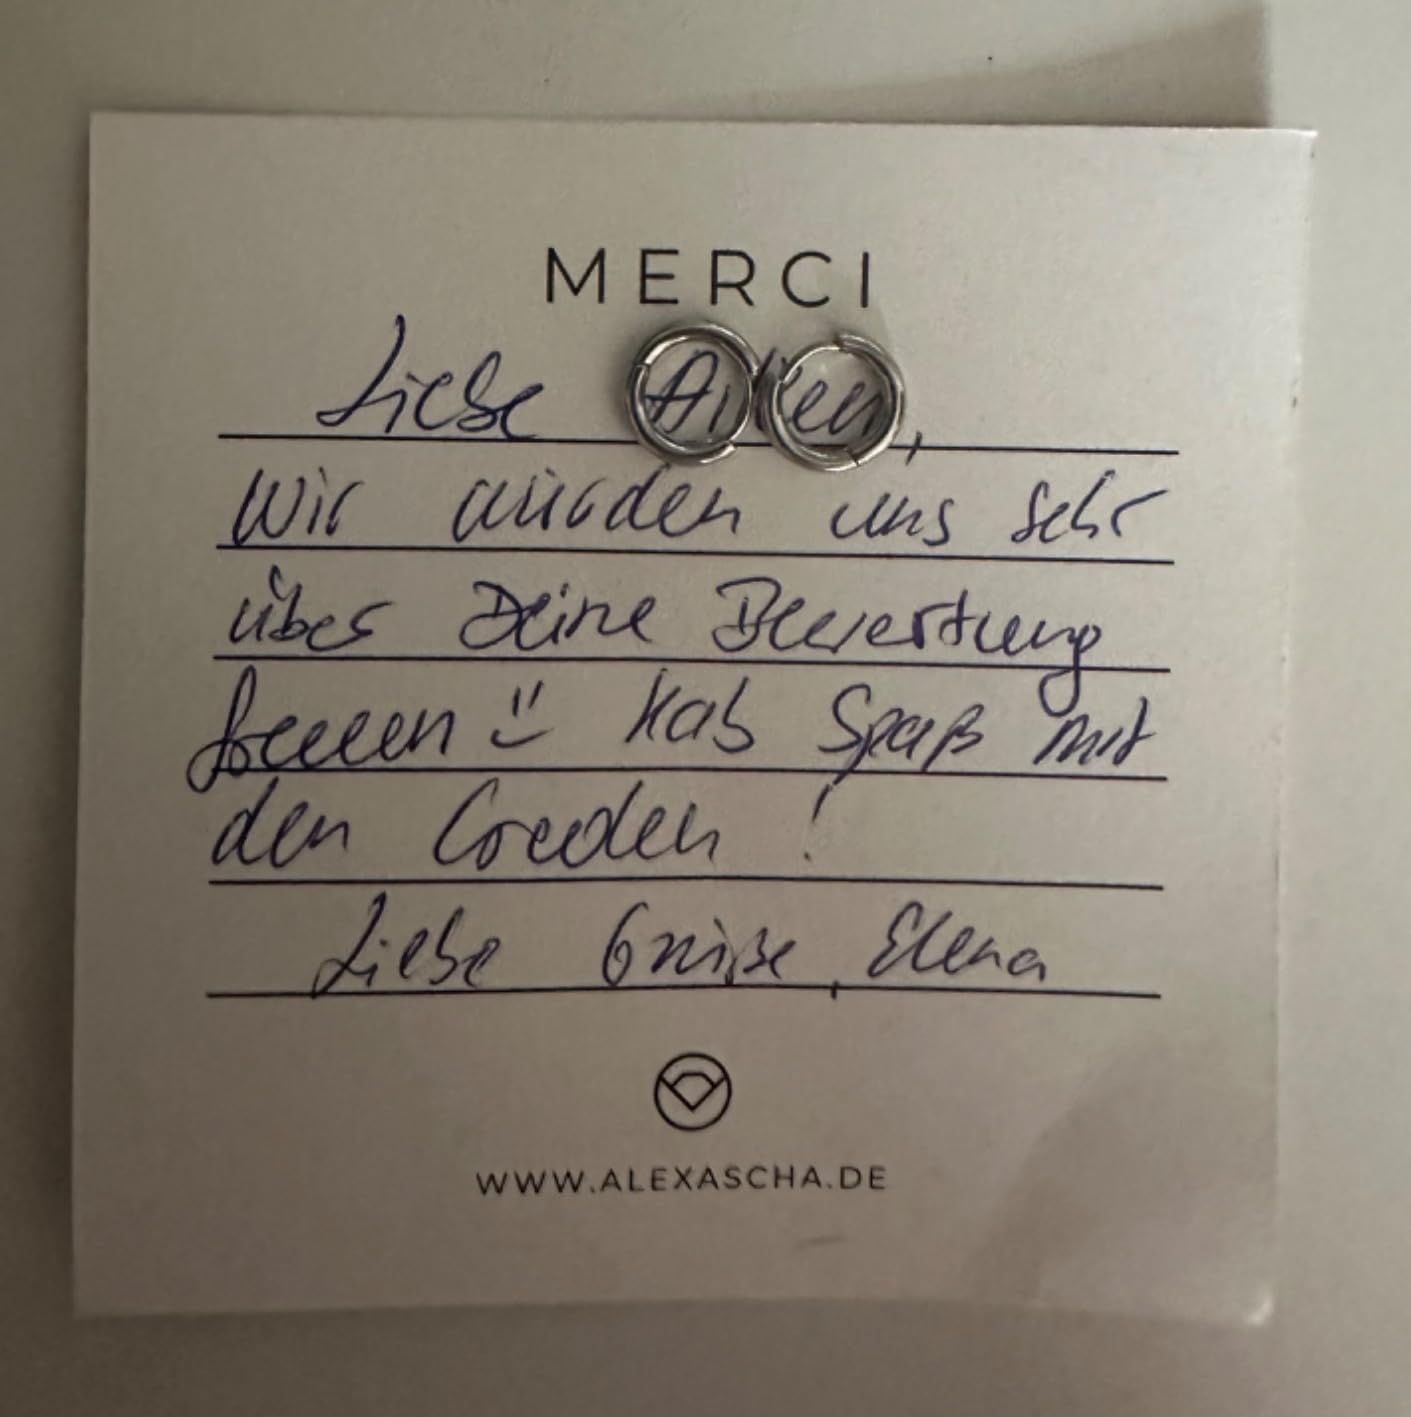 MERCI
Liebe
Wir würden uns sehr
über Deine Bewertung
freuen Hab Spaß mit
den Creolen !
Liebe Grüße, Elena
WWW.ALEXASCHA.DE